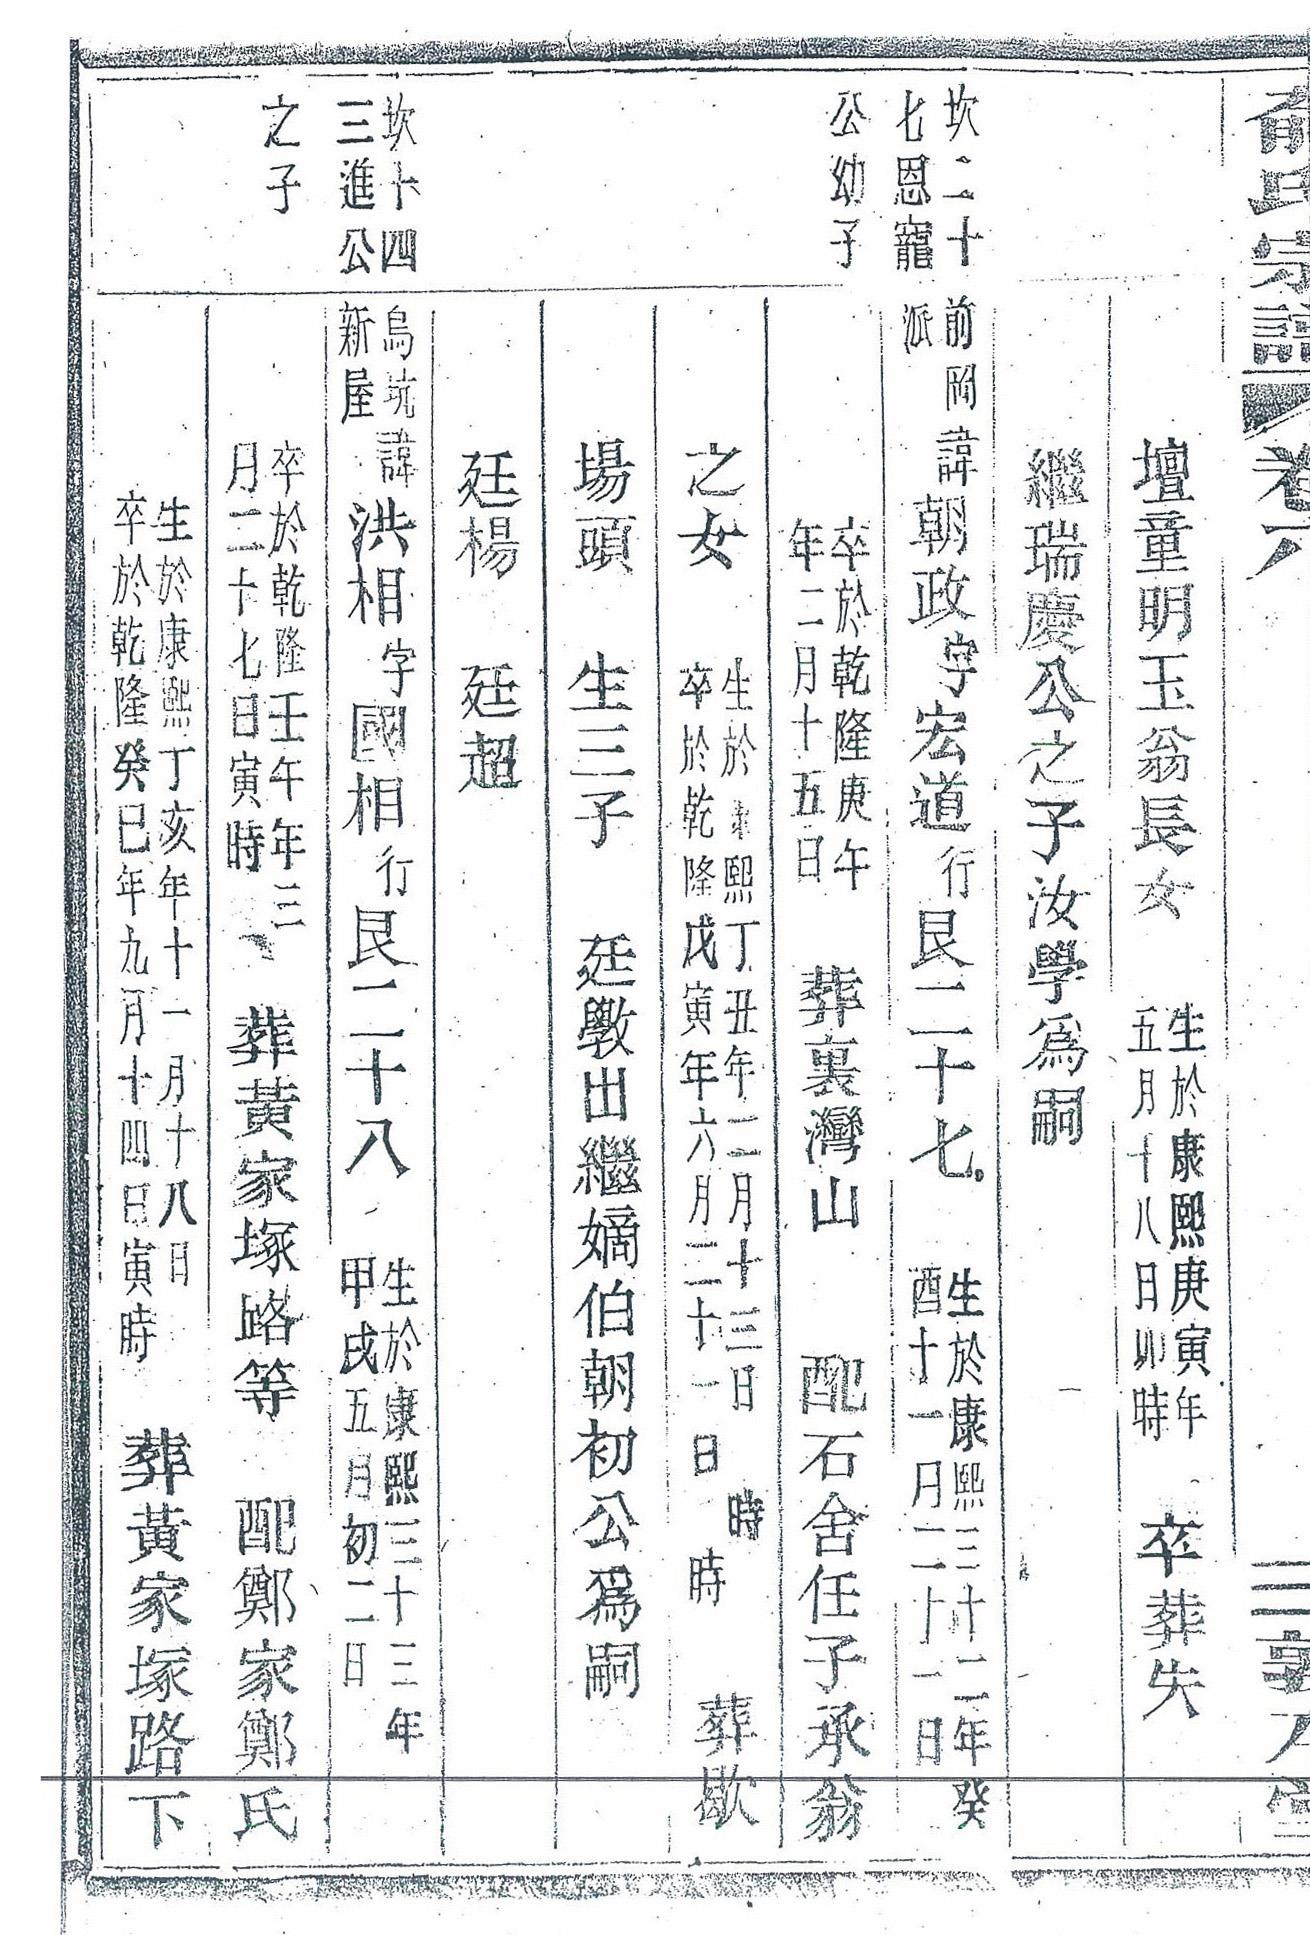 俞氏宗譜 卷六 三 敦大堂
壇童明玉翁長女 生於康熙庚寅年
五月十八日卯時 卒葬失
繼瑞慶公之子汝學爲嗣
坎二十
七恩寵
公幼子
前岡
派
諱朝政字宏道行艮二十七 生於康熙三十二年癸
酉十一月二十一日
卒於乾隆庚午
年二月十五日 葬裏灣山 配石舍任子承翁
之女 生於康熙丁丑年二月十三日 時
卒於乾隆戊寅年六月二十一日 時 葬歇
場頭 生三子 廷斆出繼嫡伯朝初公爲嗣
廷楊 廷超
坎十四
三進公
之子
烏坑
新屋
諱洪相字國相行艮二十八 生於康熙三十三年
甲戌五月初二日
卒於乾隆壬午年三
月二十七日寅時 葬黃家塚路等 配鄭家鄭氏
生於康熙丁亥年十一月十八日
卒於乾隆癸巳年九月十四日寅時 葬黃家塚路下